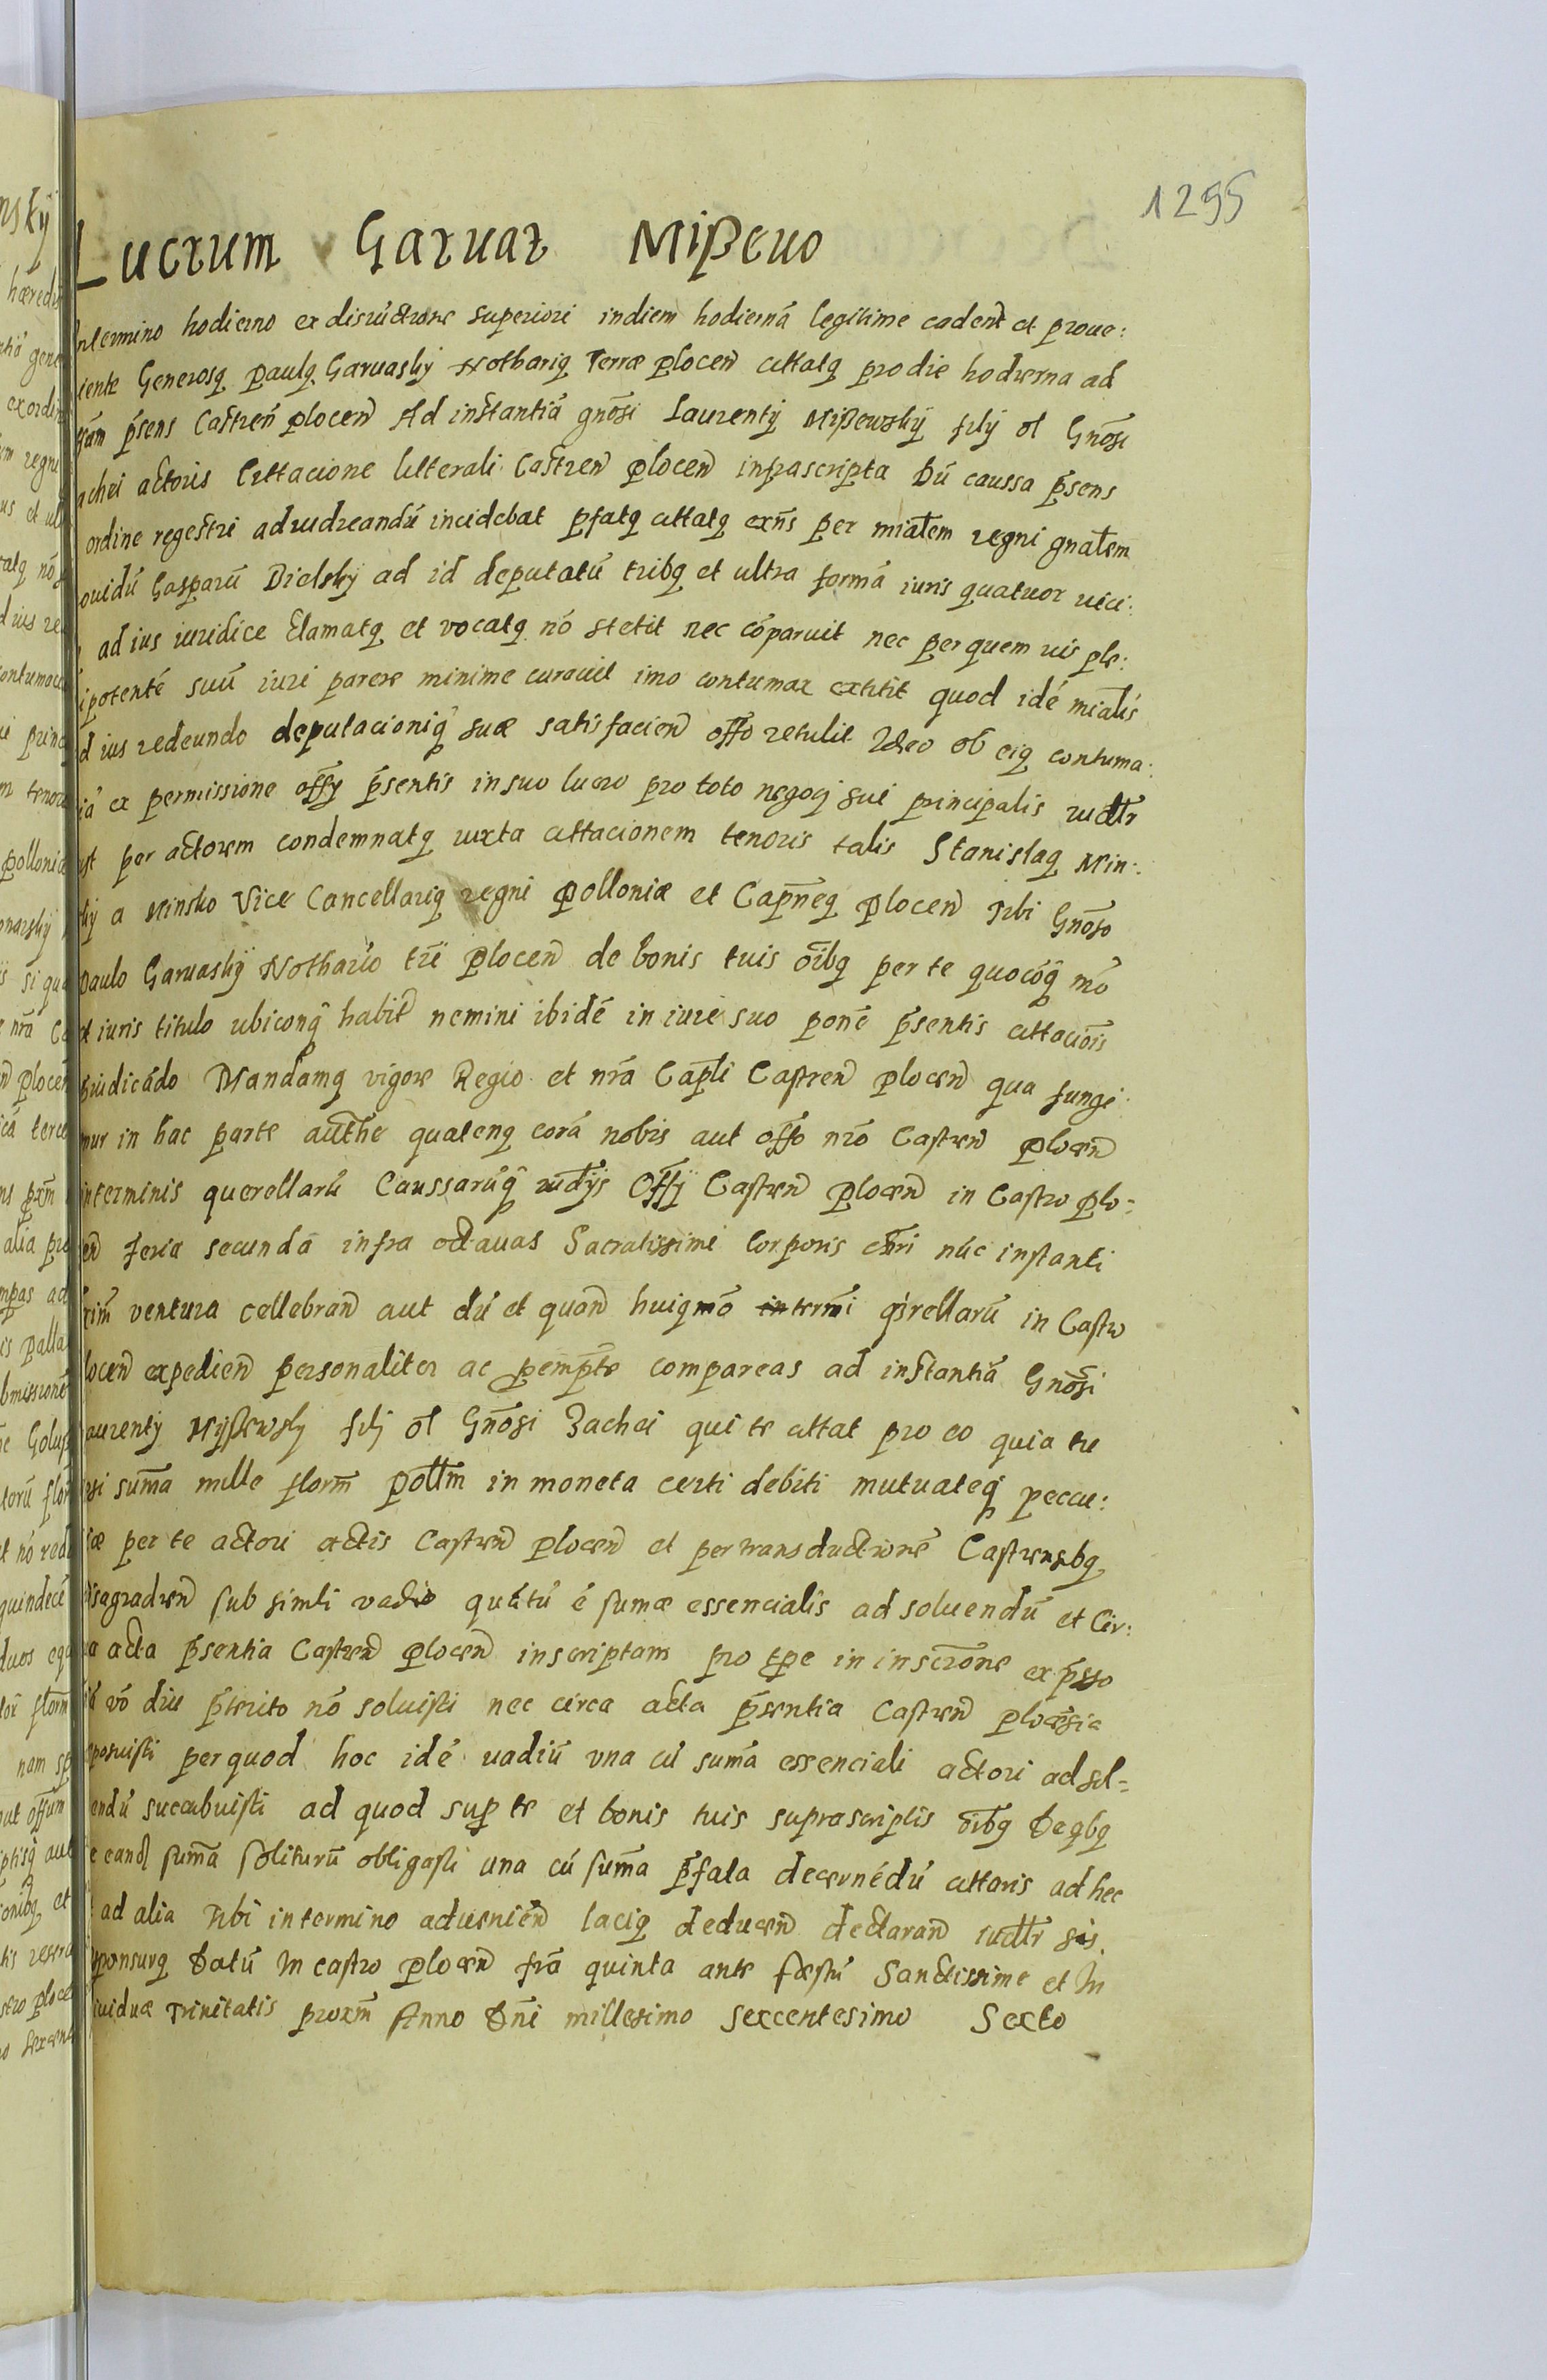 1295
Lucrum Garwar Mißewo
Intermino hodierno ex disiuctrone superiori indiem hodierná legitime cadent et proue:
iente Generosq Paulq Garwasky Nothariq Terræ plocen cittatq prodie hodierna ad
p̄sens Castren̄ plocen Ad instantiā gn̄osi Laurentij Mißewskij filij ol Gn̄osi
achei actoris Cittacione litterali Castren plocen infrascripta Dū caussa p̄sens
ordine regestri adiudicandū incidebat p̄fatq cittatq exn̄s per mīalem regni gnalem
ouidū Gasparū Dielsky ad id deputatū tribq et ultra formā iuris quatuor vici:
ad ius iuridice clamatq et vocatq nō stetit nec cōparuit nec per quem vis ple:
ipotentē suū iuri parere minime curauit imo contumax extitit quod idē mialis
d ius redeundo deputacioniq suæ satisfacien offo retulit Ideo ob eiq contuma:
iā ex permissione offy p̄sentis insuo lucro pro toto negocij sui principalis iudtr
st per actorem condemnatq iuxta cittacionem tenoris talis Stanislaq Min:
ky a Minsko Vice Cancellariq regni Polloniæ et Capneq plocen Tibi Gn̄oso
Paulo Garwasky Nothario tr̄i plocen de bonis tuis oībq per te quocōq mō
et iuris titulo ubiconq habit nemini ibidē in iure suo ponē p̄sentis cittacōis
p̄iudicādo Mandamq vigore Regio et nr̄a Capli Castren plocen qua fungi:
mur in hac parte authe quatenq corā nobis aut offo nr̄o Castren plocen
interminis querellarū Caussarūq iudys Offij Castren plocen in Castro plo:
en feria secundā infra octauas Sacratissimi Corporis chri nūc instanti
ventura cellebran aut dū et quan huiqmō in termi qrellarū in Castro
locen expedien personaliter ac pempte compareas ad instantiā Gn̄osi
aurentij Myßewsky filij ol Gn̄osi Zachei qui te cittat pro eo quia tu
summa mille florm pollm in moneta certi debiti mutuateq peccu:
iæ per te actori actis Castren plocen et pertransductionē Castrensibq
isagraden sub simli vadio quātū ē sumæ essencialis ad soluendū et Cir:
ca acta p̄sentia Castren plocen inscriptam pro tpe in inscrone ex p̄sso
vō diu p̄terito nō soluisti nec circa acta p̄sentia Castren plocensia
eposuisti per quod hoc idē vadiū una cū sumā essenciali actori ad sol:
endū succubuisti ad quod sup te et bonis tuis suprascriptis oībq Deqbq
e eand sumā solituru obligasti una cū sumā p̄fata decernēdū cittaris ad hec
ad alia Tibi intermino aduenien laciq deducen declaran iudtr sis
rponsurq Datū In castro plocen fr̄a quinta ante festū Sanctissime et In
iuiduæ Trinitatis proxm Anno Dn̄i millesimo Sexcentesimo Sexto